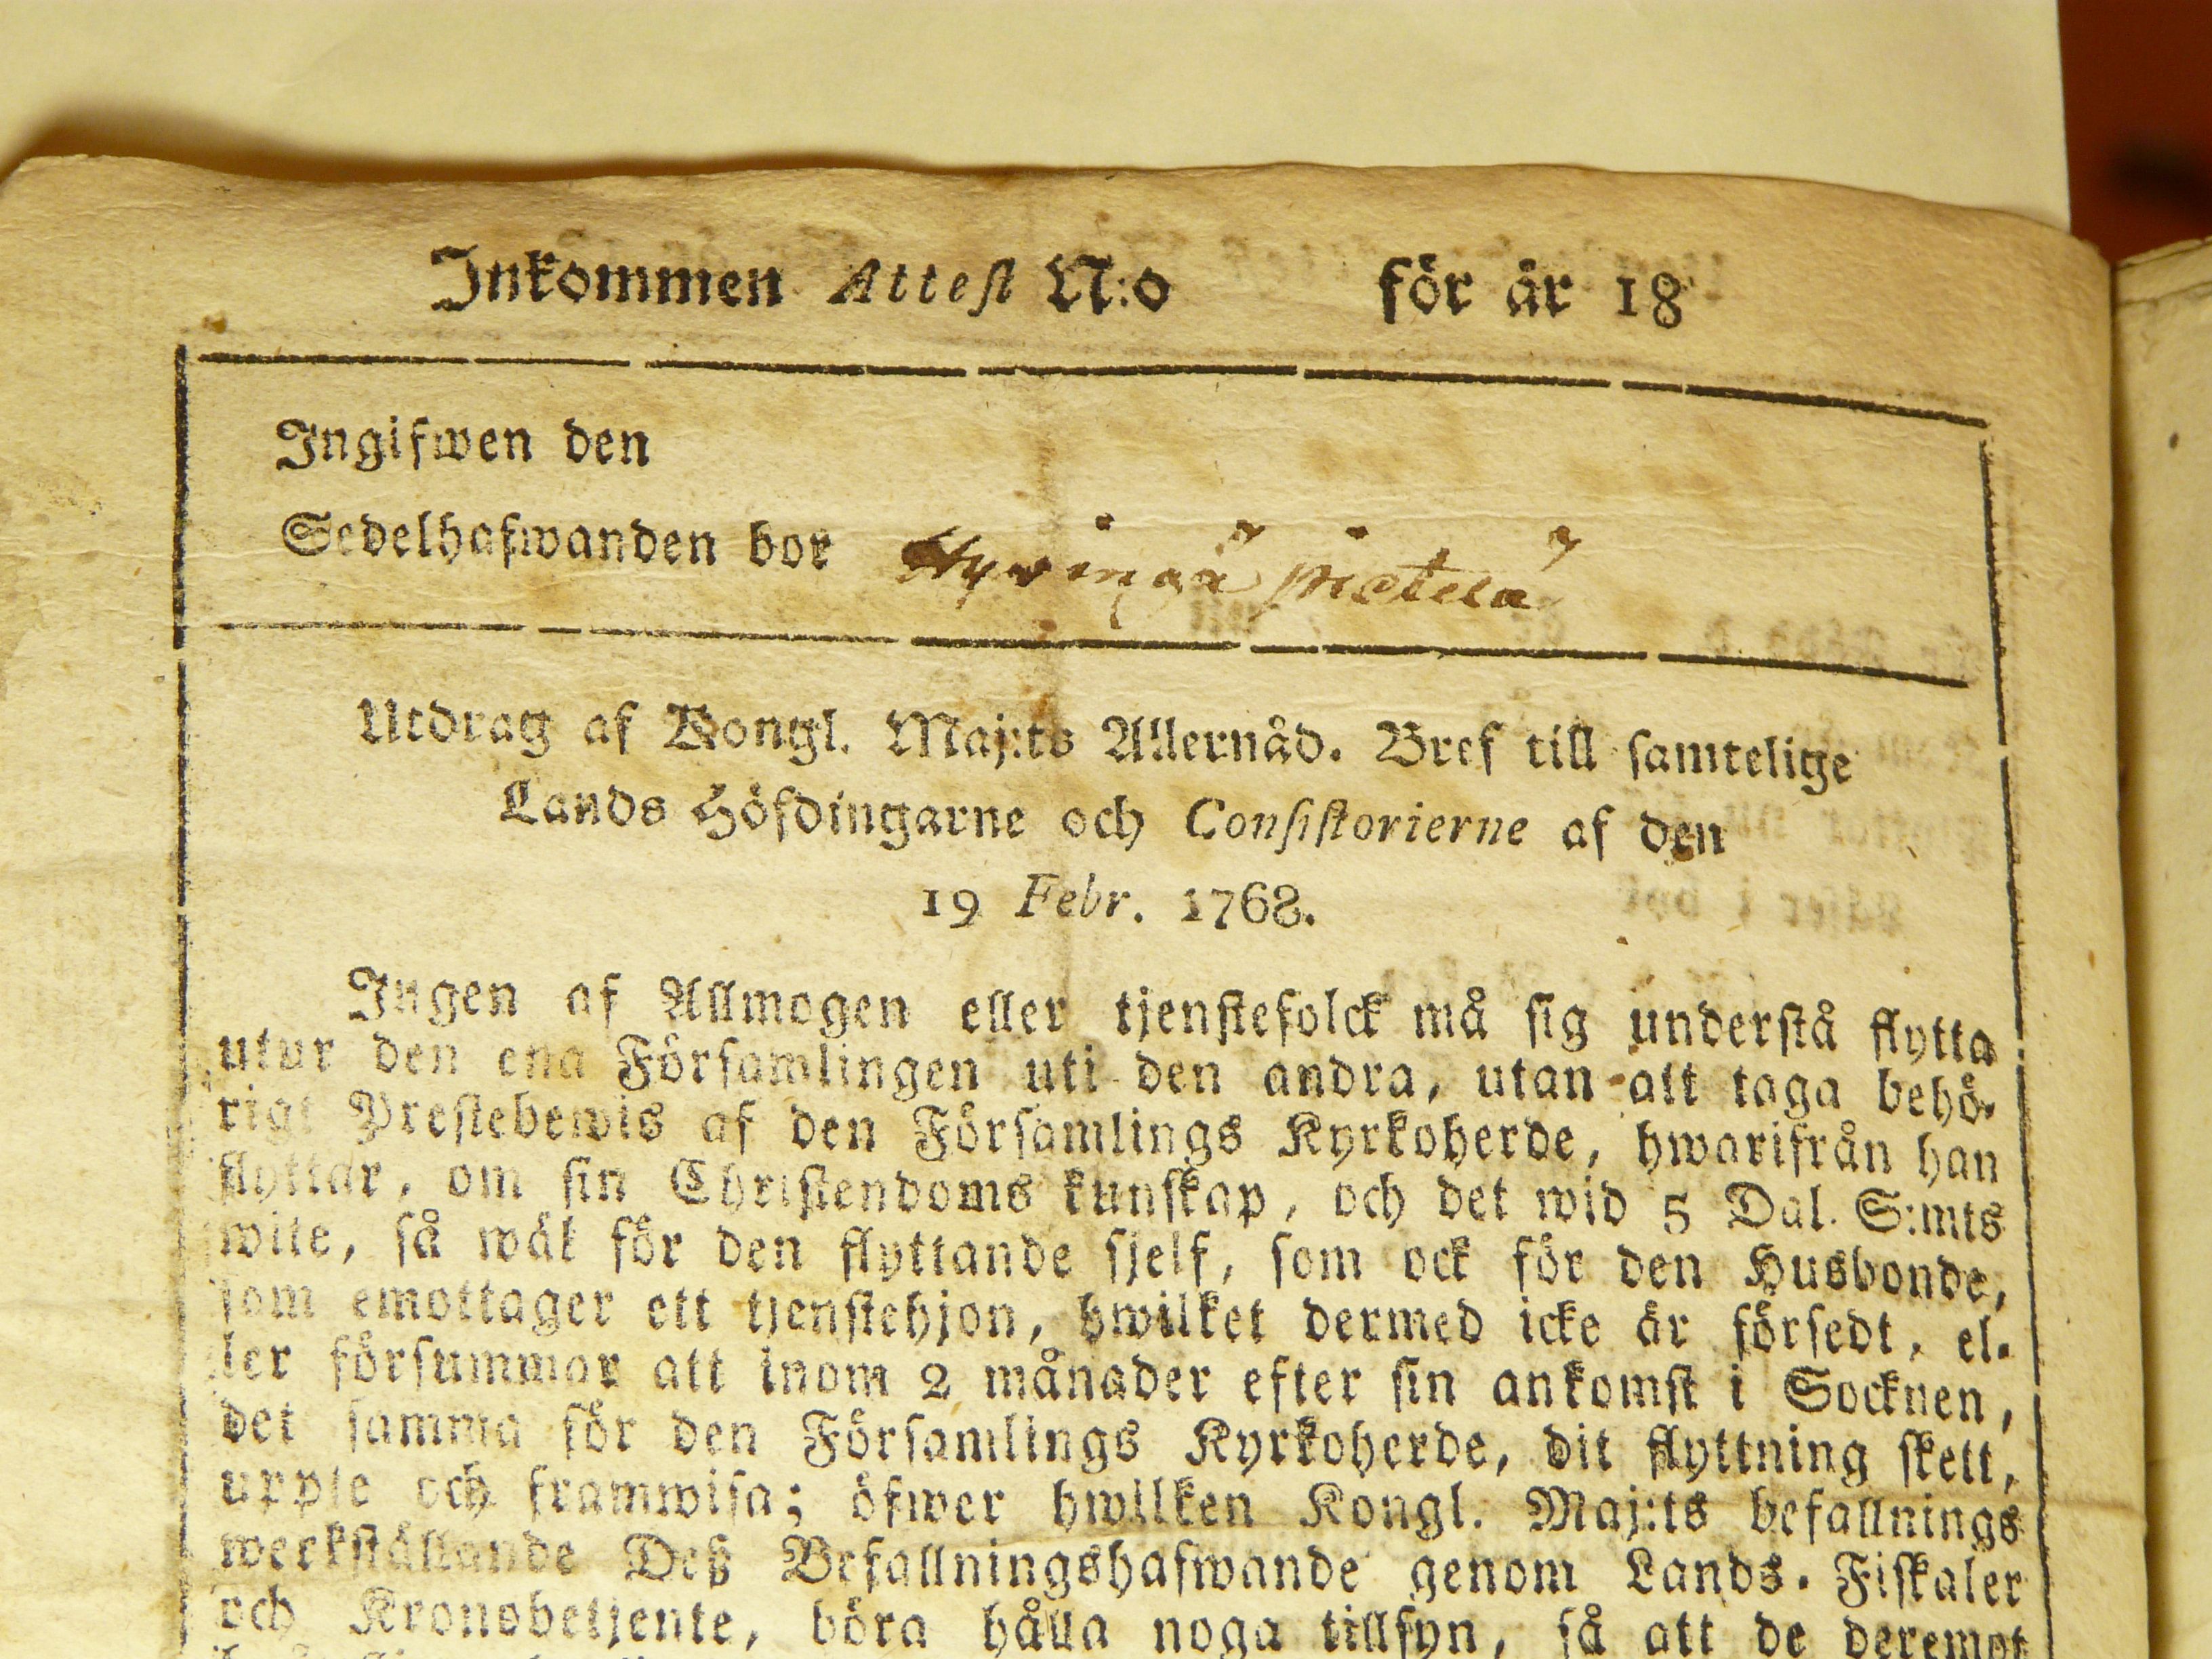 Inkommen Attest N:o för år 18
Ingifwen den
Sedelhafwanden bor Hyvingä
Utdrag af Kongl. Maj:ts Allernåd. Bref till samtelige
Lands Höfdingarne och Consistorierne af den
19 Febr. 1768.
Ingen af Allmogen eller tjenstefolck må sig understå flytta
utur den ena Församlingen uti den andra, utan att taga behö-
rigt Prestebewis af den Församlings Kyrkoherde, hwarifrån han
flyttar, om sin Christendoms kunskap, och det wid 5 Dal. S:mts
wite, så wäl för den flyttande sjelf, som ock för den Husbonde,
som emottager ett tjenstehjon, hwilket dermed icke är försedt, el-
ler försummar att inom 2 månader efter sin ankomst i Socknen,
det samma för den Församlings Kyrkoherde, dit flyttning skett,
uppte och framwisa; öfwer hwilken Kongl. Maj:ts befallnings
werkställande Deß Befallningshafwande genom Lands-Fiskaler
och Kronobetjente, böra hålla noga tillsyn, så att de deremot